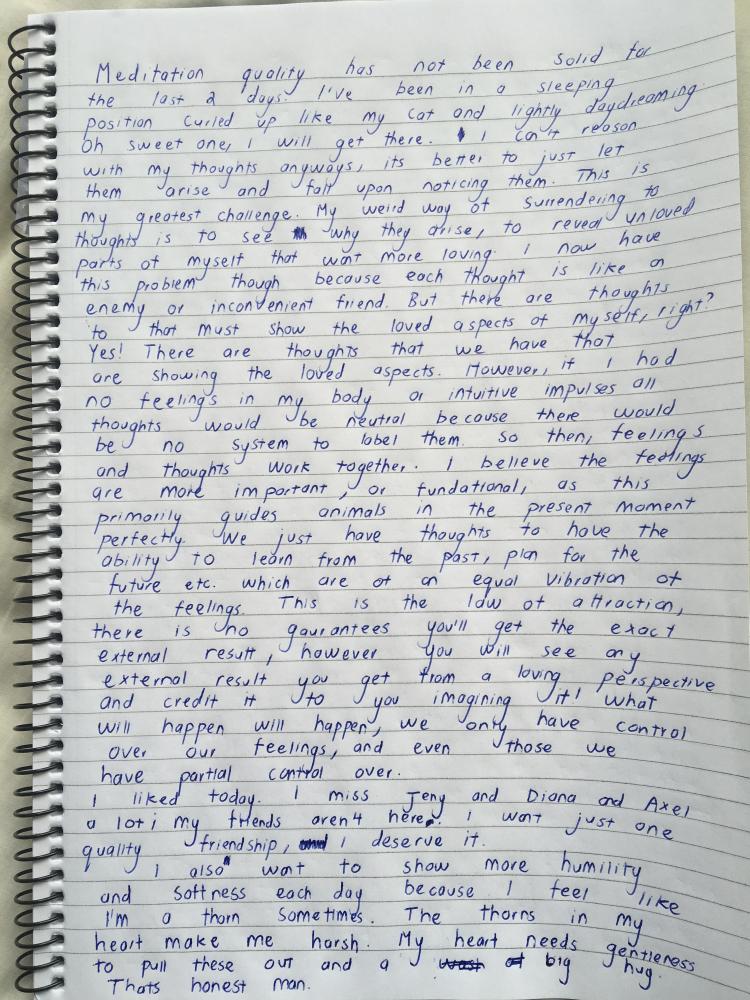 Meditation quality has not been solid for
the last 2 days. I've been in a sleeping
position curled up like my cat and lightly daydreaming.
Oh sweet one, I will get there. I can't reason
with my thoughts anyways, its better to just let
them arise and fall upon noticing them. This is
my greatest challenge. My weird way of surrendering to
thoughts is to see why they arise, to reveal unloved
parts of myself that want more loving. I now have
this problem though because each thought is like an
enemy or inconvenient friend. But there are thoughts
to that must show the loved aspects of myself, right?
Yes! There are thoughts that we have that
are showing the loved aspects. However, if I had
no feelings in my body or intuitive impulses all
thoughts would be neutral because there would
be no system to label them. So then, feelings
and thoughts work together. I believe the feelings
are more important, or fundational, as this
primarily guides animals in the present moment
perfectly. We just have thoughts to have the
ability to learn from the past, plan for the
future etc. which are of an equal vibration of
the feelings. This is the law of attraction,
there is no gaurantees you'll get the exact
external result, however you will see any
external result you get from a loving perspective
and credit it to you imagining it! What
will happen will happen, we only have control
over our feelings, and even those we
have partial control over.
I liked today. I miss Jeny and Diana and Axel
a lot; my friends aren't here. I want just one
quality friendship, I deserve it.
I also want to show more humility
and softness each day because I feel like
I'm a thorn sometimes. The thorns in my
heart make me harsh. My heart needs gentleness
to pull these out and a big hug.
Thats honest man.